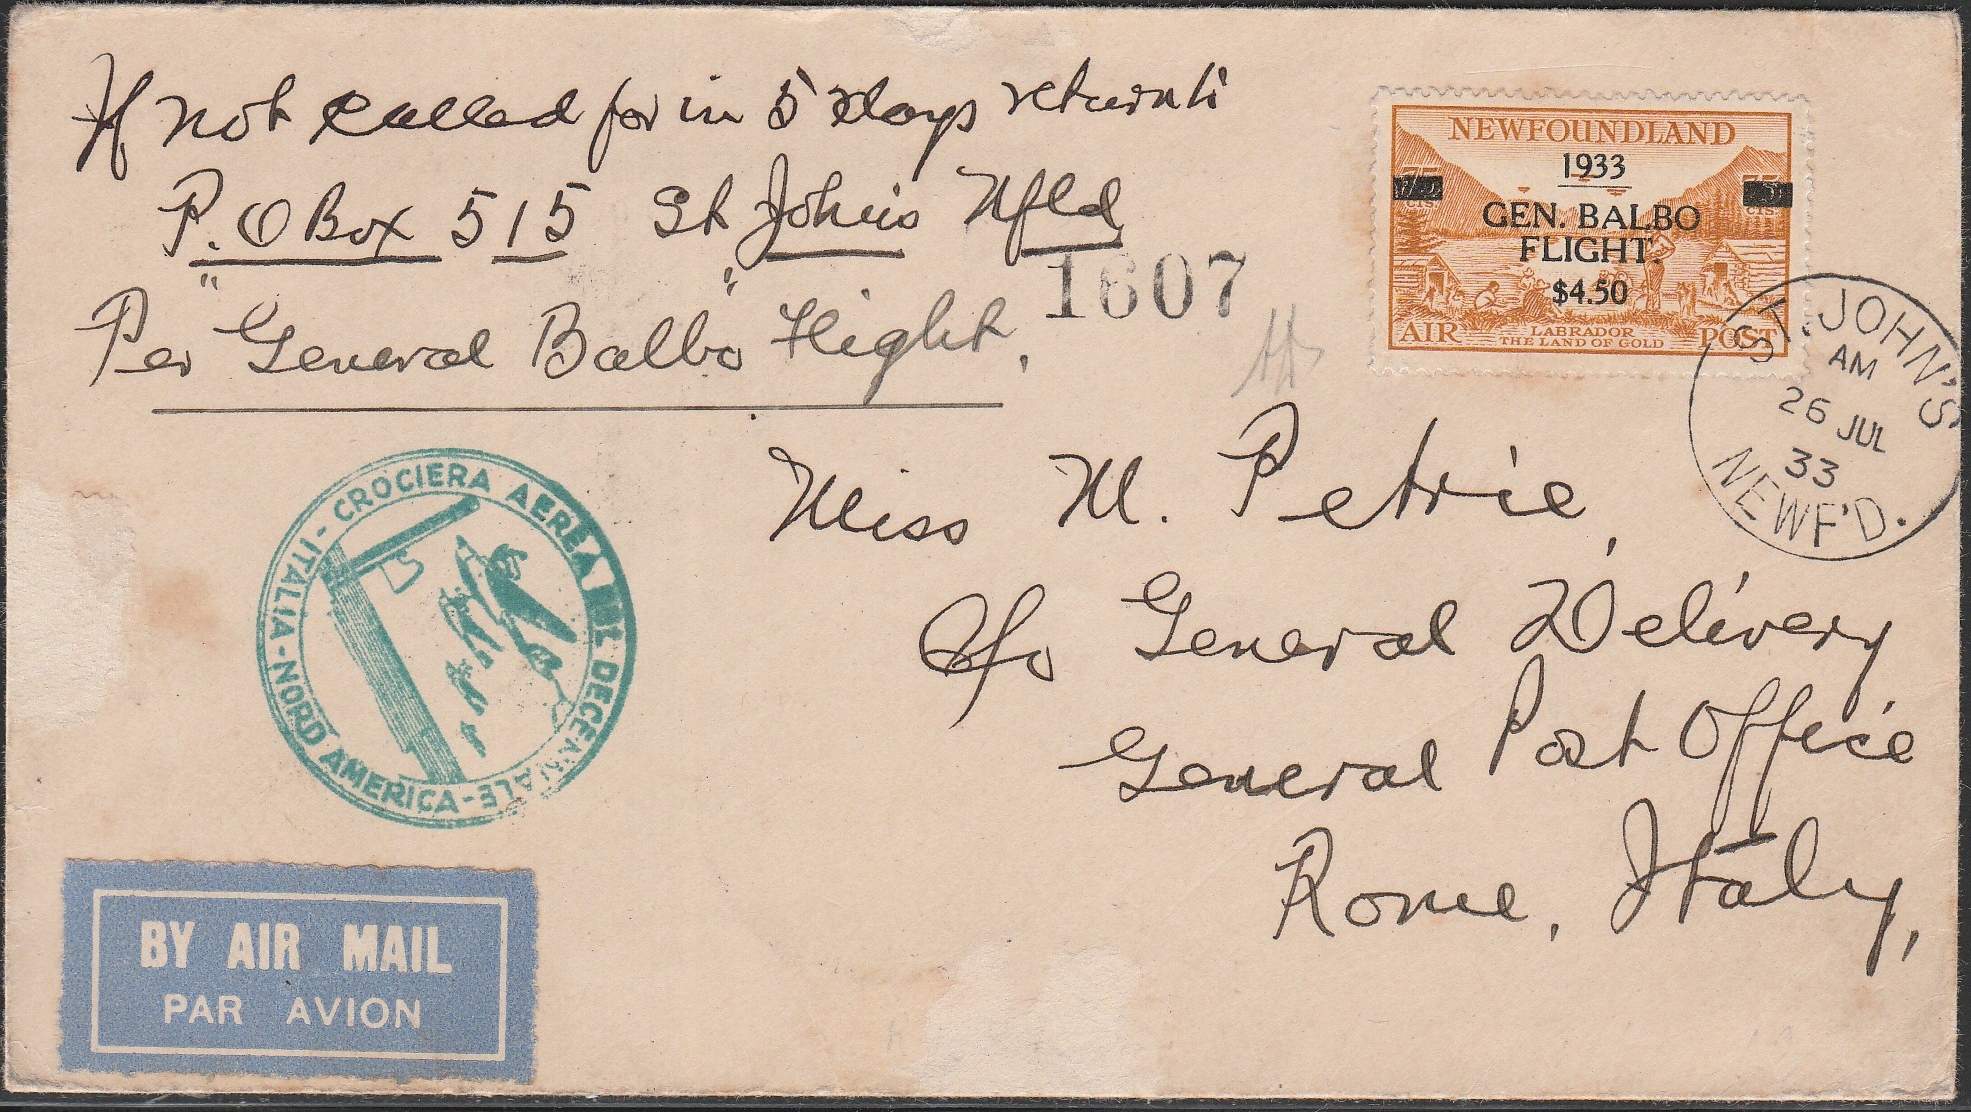 If not called for in 5 days return to
P.O Box 515 St John's Nfld
Per "General Balbo" Flight,
1607
NEWFOUNDLAND
1933
GEN. BALBO
FLIGHT.
$4.50
AIR LABRADOR POST
THE LAND OF GOLD
ST. JOHN'S
AM
26 JUL
33
NEWF'D.
Miss M. Petrie,
c/o General Delivery
General Post Office
Rome, Italy,
CROCIERA AEREA DEL DECENNALE - NORD AMERICA - ITALIA -
BY AIR MAIL
PAR AVION